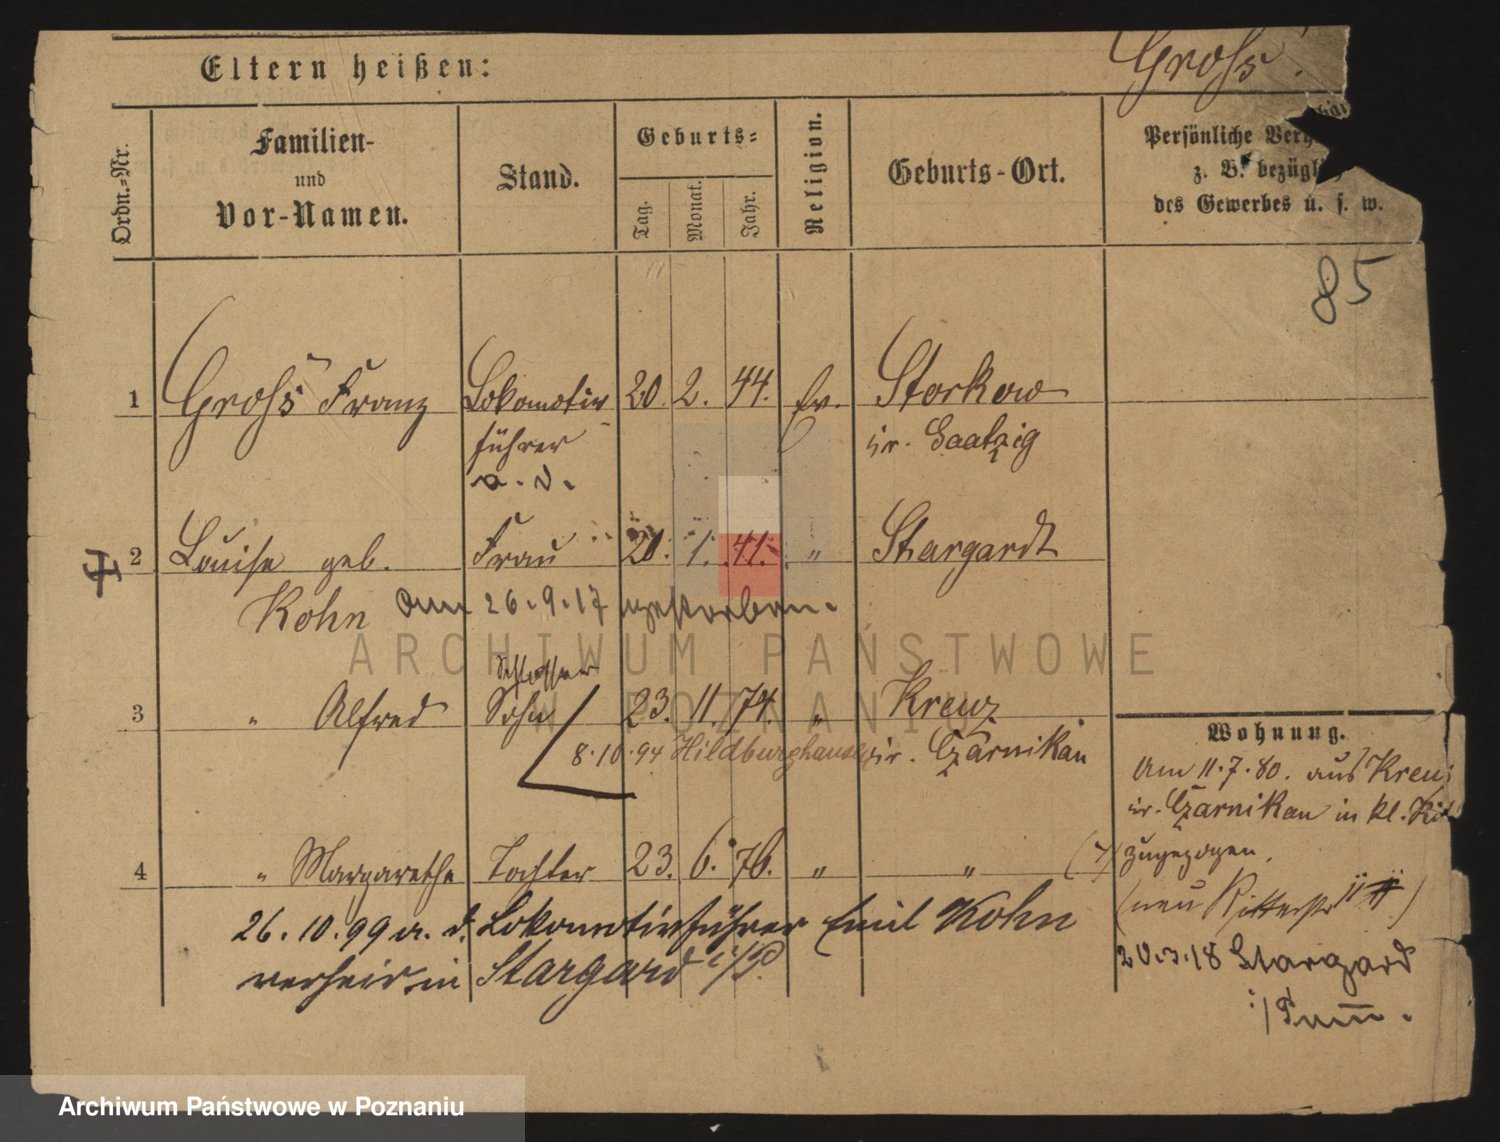 Eltern heißen:
Gross.
Ordn.-Nr.
Familien-
und
Vor-Namen.
Stand.
Geburts-
Tag.
Monat.
Jahr.
Religion.
Geburts-Ort.
Persönliche
z. B. bezügli
des Gewerbes u. s. w.
85
1 Gross Franz Lokomotiv 20. 2. 44. Ev. Storkow
führer Kr. Saatzig
a. D.
2 Louise geb. Frau 20. 1. 41. " Stargardt
Kohn am 26.9.17 gestorben.
Schlosser
3 " Alfred Sohn 23. 11. 74. " Kreuz
8.10.94 Hildburghausen Kr. Czarnikau
4 " Margarethe Tochter 23. 6. 76. " "
26.10.99 a. d. Lokomotivführer Emil Kohn
verheir. in Stargard i/P.
Wohnung.
Am 11.7.80. aus Kreuz
Kr. Czarnikau in kl.
zugezogen.
(neu Ritterstr 11)
20.3.18 Stargard
i/Pomm.
ARCHIWUM PAŃSTWOWE
W POZNANIU
Archiwum Państwowe w Poznaniu